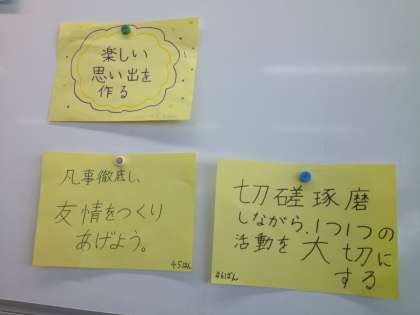 楽しい
思い出を
作る
凡事徹底し、
友情をつくり
あげよう。
45はん
切磋琢磨
しながら、1つ1つの
活動を大切に
する
46ぱん